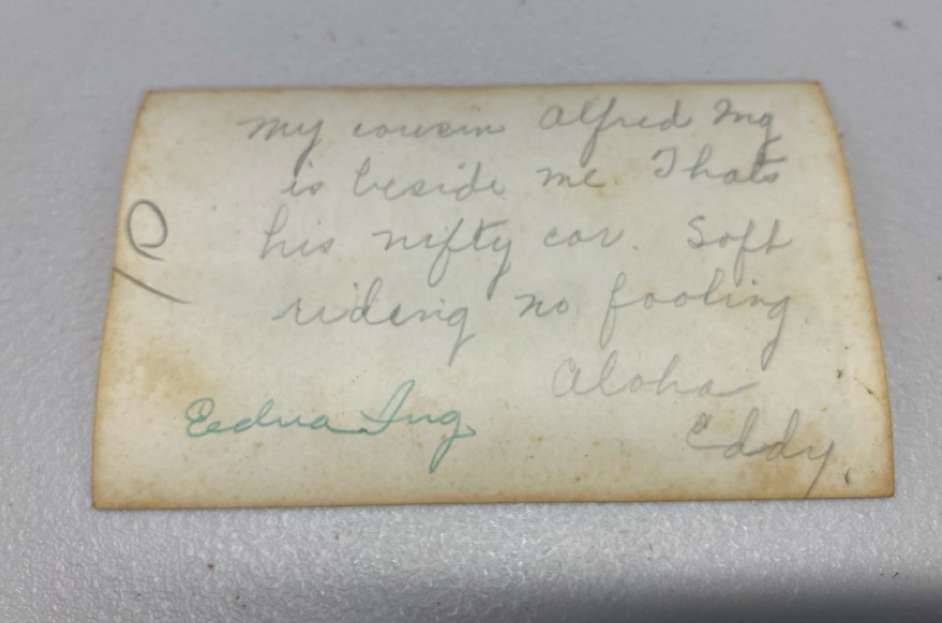 My cousin Alfred Ing
is beside me. Thats
his nifty car. Soft
riding no fooling
Aloha
Eddy.
Eedna Ing
10